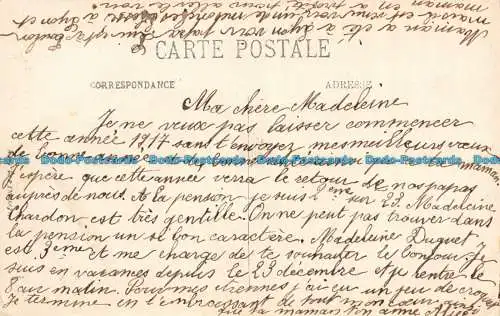 maman a
mardi est venu voir
Maman a été à Lyon voir papa
CARTE POSTALE
CORRESPONDANCE ADRESSE
Ma chère Madeleine
Je ne veux pas laisser commencer
cette année 1917 sans t'envoyer mes meilleurs vœux
de bonne maman
J'espère que cette année verra le retour de nos papas
auprès de nous. A la pension je suis 2ème sur 23. Madeleine
Chardon est très gentille. On ne peut pas trouver dans
la pension un si bon caractère. Madeleine Duguet
est 3ème et me charge de te souhaiter le bonjour. Je
suis en vacances depuis le 23 décembre et je rentre le
8 au matin. Pour mes étrennes j'ai eu un jeu de croquet
Je termine en t'embrassant de tout mon cœur ainsi
que ta maman ton amie
Dodo-Postcards.com